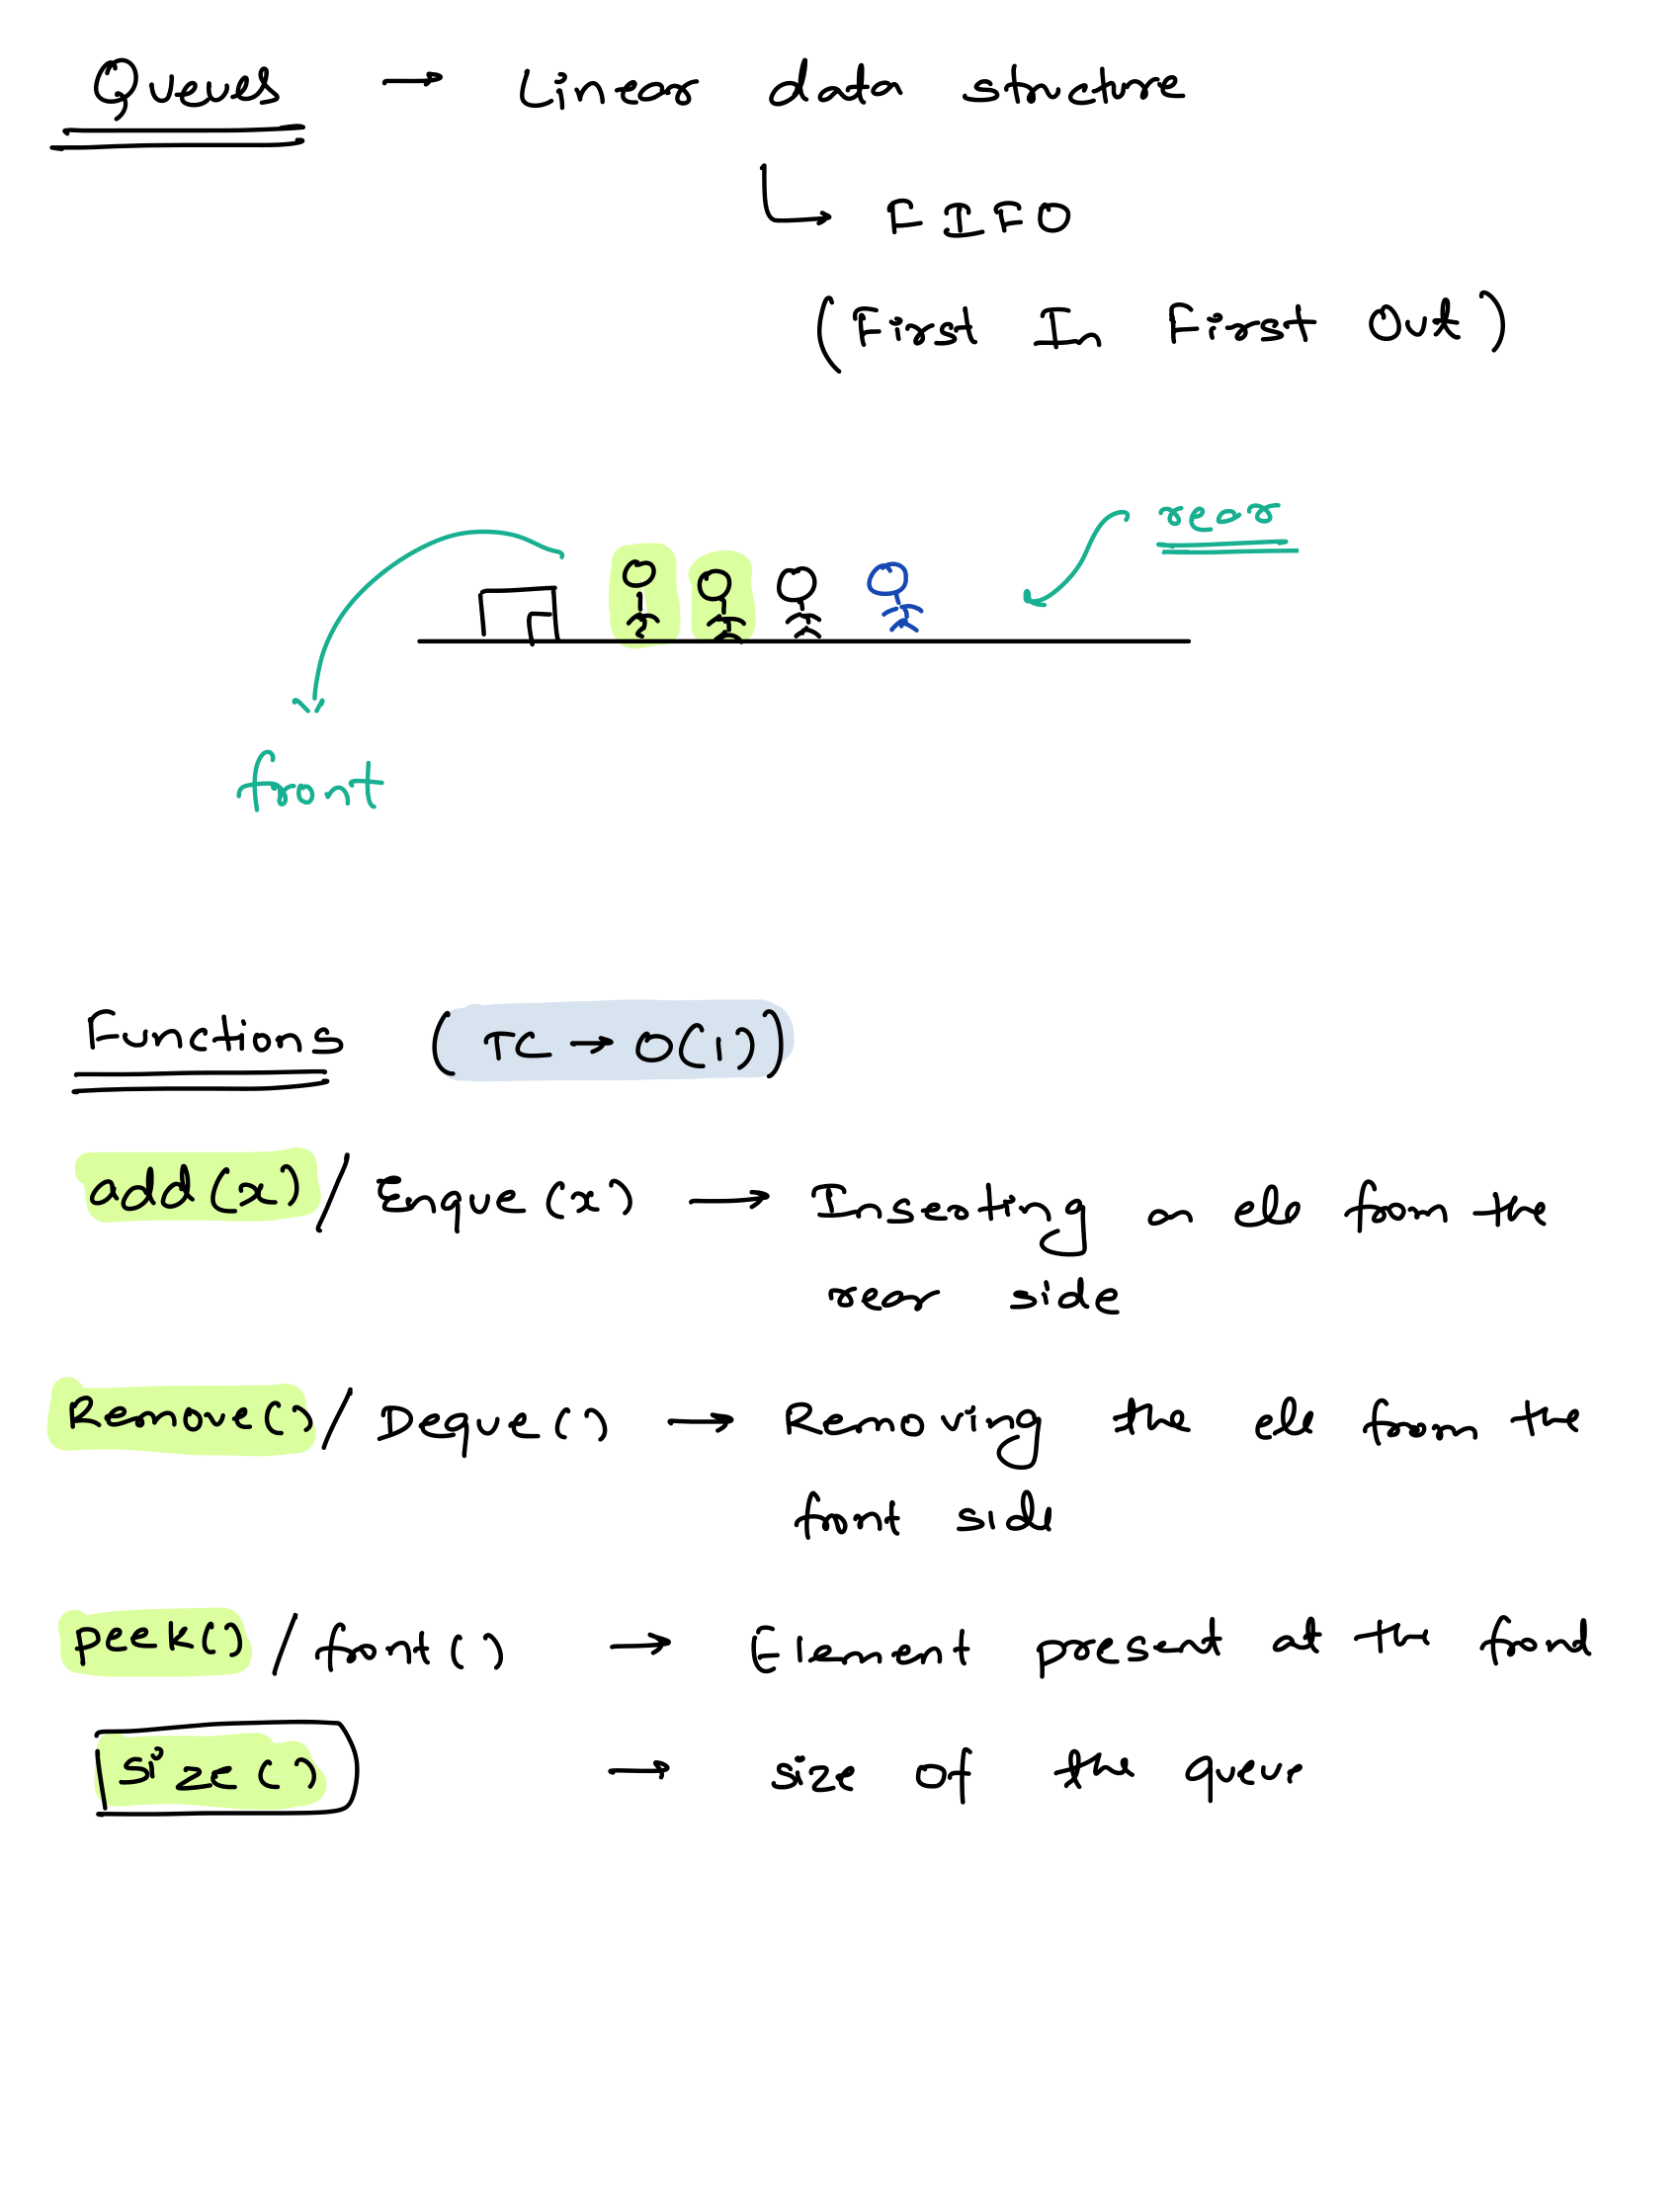 Queues → Linear data structure
↳ FIFO
(First In First Out)
rear
front
Functions (TC → O(1))
add(x) / Enque(x) → Inserting an ele from the
rear side
Remove() / Deque() → Removing the ele from the
front side
peek() / front() → Element present at the frond
size() → size of the queue